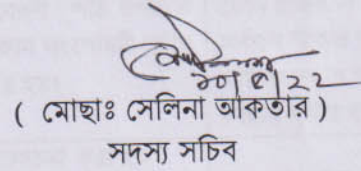 ( মোছাঃ সেলিনা আকতার )
সদস্য সচিব